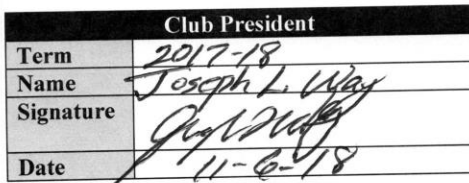 Club President
Term 2017-18
Name Joseph L. Way
Signature
Date 11-6-18